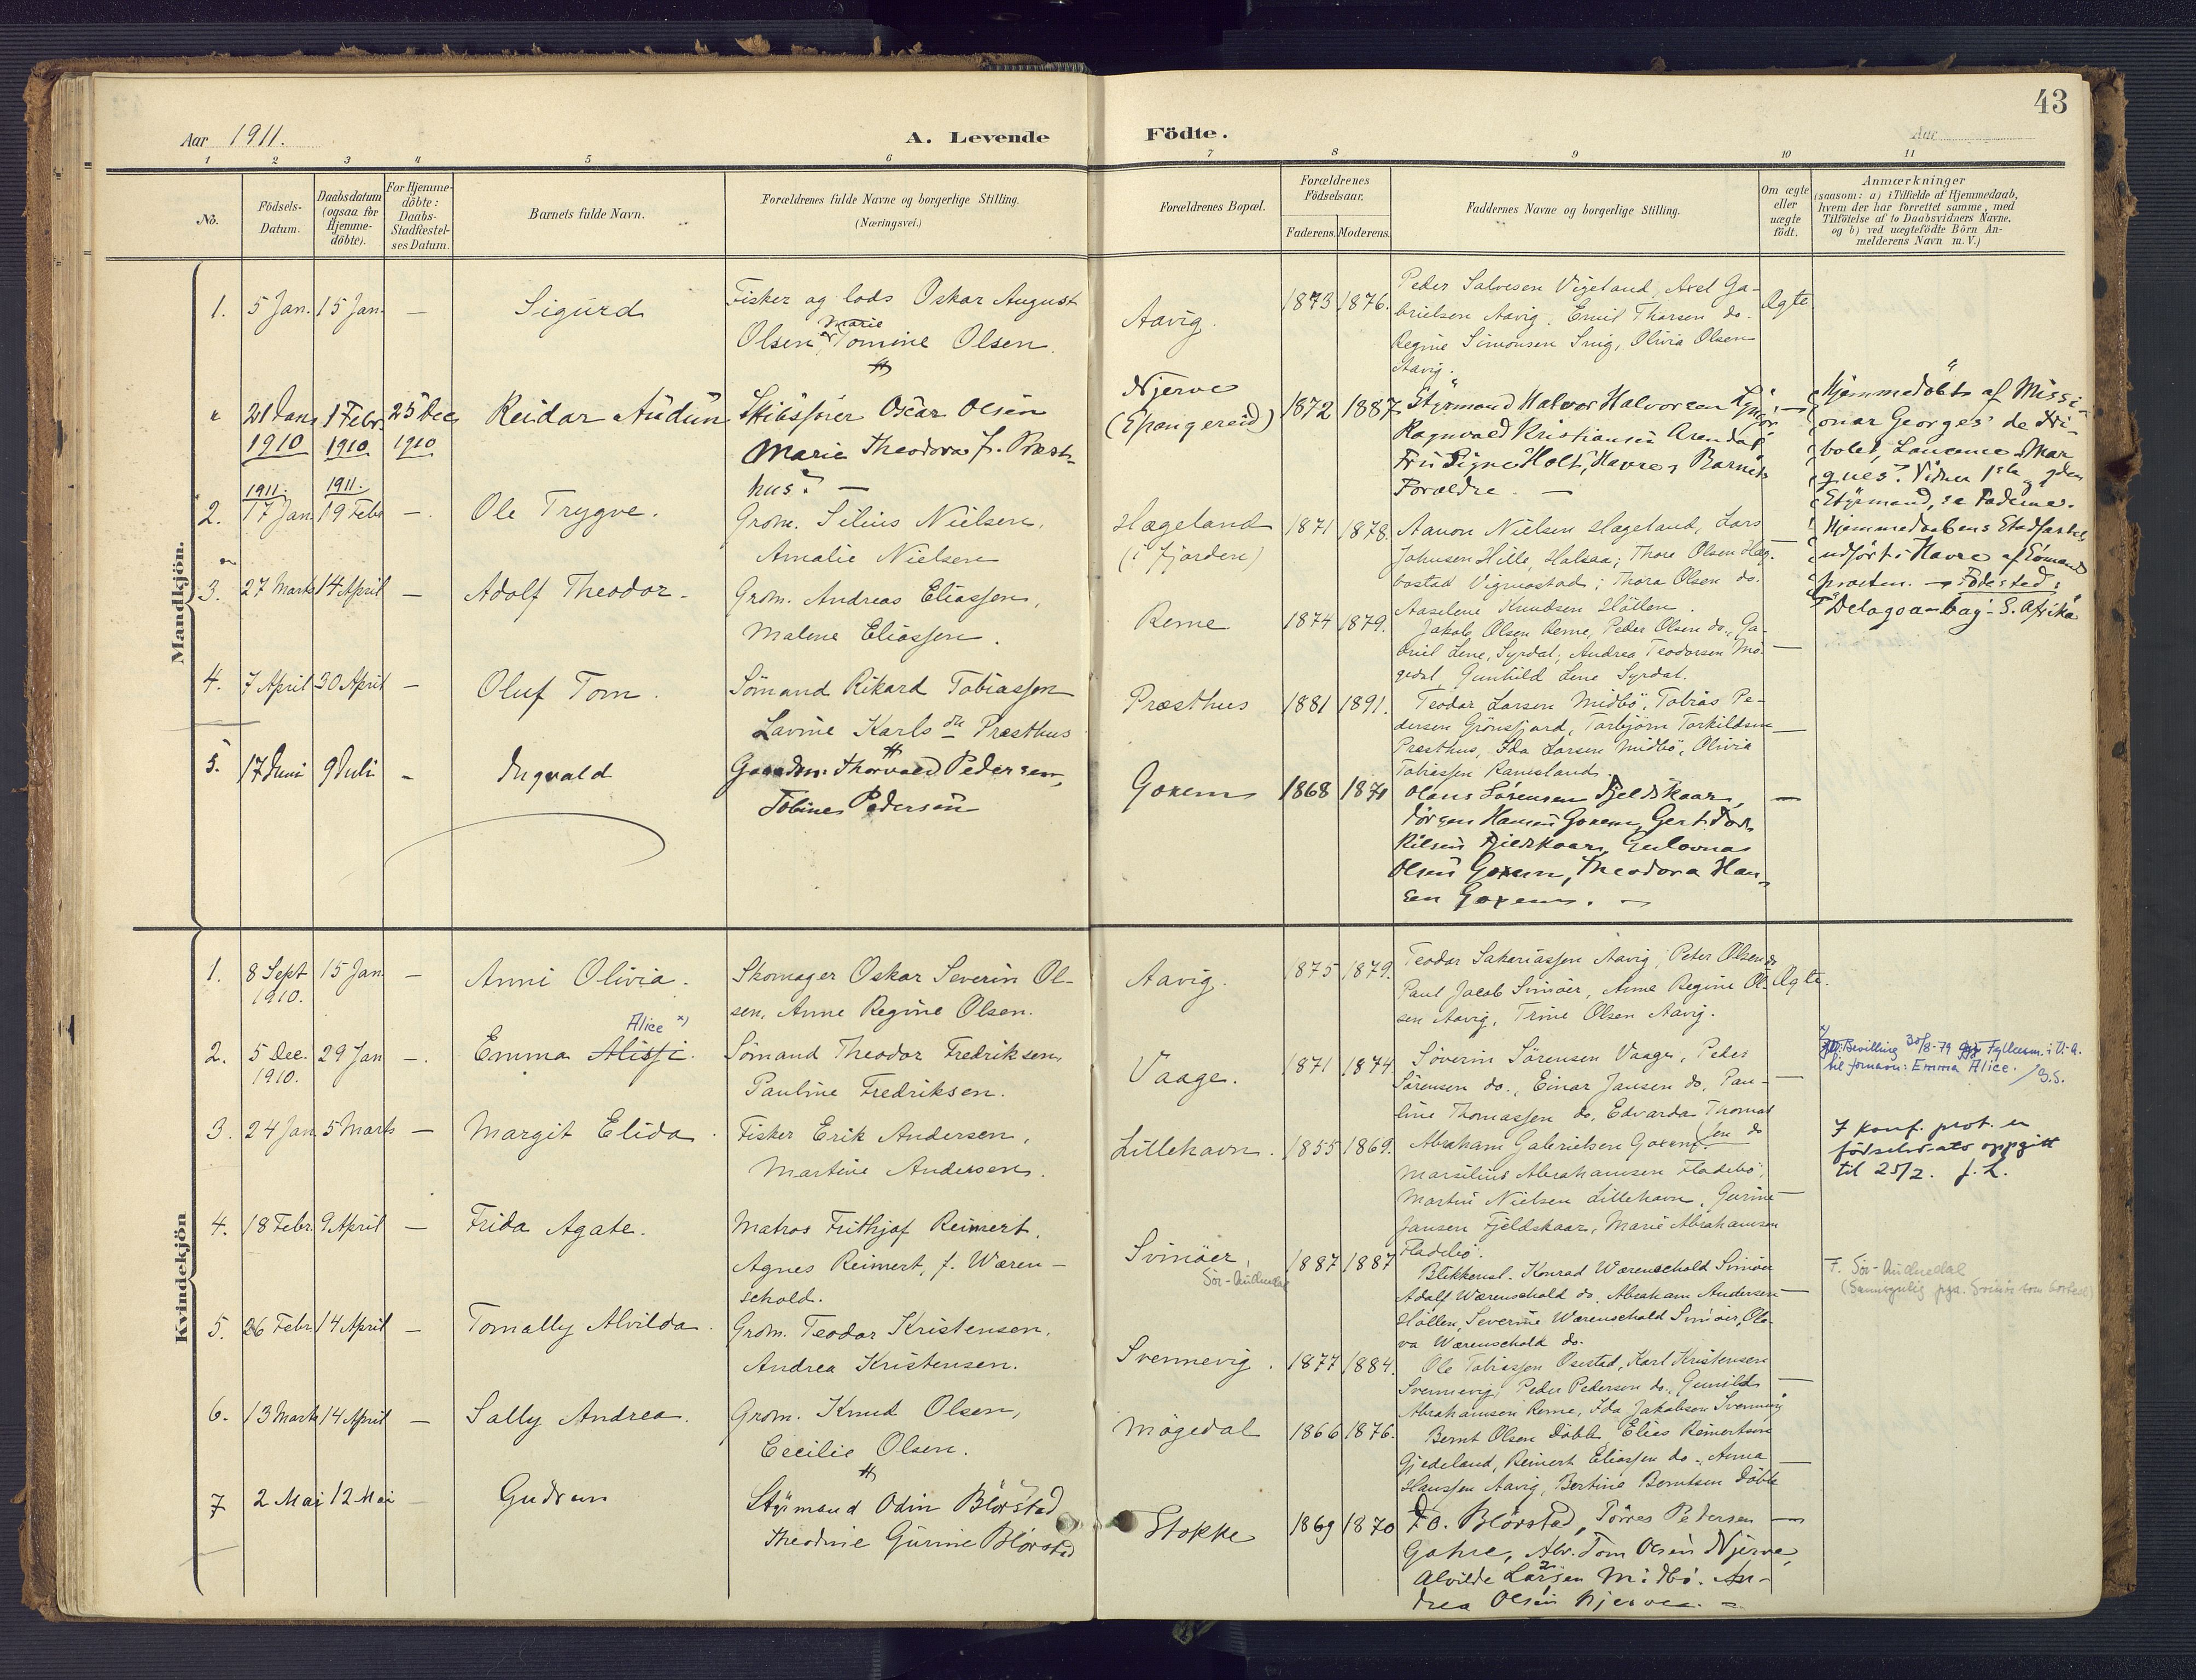 43
Aar 1911.
A. Levende Födte.
Aar
1 2 3 4 5 6 7 8 9 10 11
No.
Födsels-Datum.
Daabsdatum (ogsaa for Hjemme-döbte).
For Hjemme-döbte: Daabs-Stadfæstel-ses Datum.
Barnets fulde Navn.
Forældrenes fulde Navne og borgerlige Stilling.
(Næringsvei.)
Forældrenes Bopæl.
Forældrenes Födselsaar.
Faderens. Moderens.
Faddernes Navne og borgerlige Stilling.
Om ægte eller uægte födt.
Anmærkninger
(saasom: a) i Tilfælde af Hjemmedaab,
hvem der har forrettet samme, med
Tilföielse af to Daabsvidners Navne.
og b) ved uægtefödte Börn An-
melderens Navn m. V.)
Mandkjön.
1. 5 Jan. 15 Jan. — Sigurd
Fisker og lods Oskar August
Marie
Olsen, Tomine Olsen.
Aavig. 1873 1876.
Peder Salvesen Vigeland, Axel Ga-
brielsen Aavig. Emil Thorsen do.
Regine Simonsen Snig, Olivia Olsen
Aavig.
Ægte
21 Jan. 1910 1 Febr. 1910 25 Dec 1910 Reidar Audun
Skibsfører Oscar Olsen
Marie Theodora f. Præst-
hus. —
Njerve
(Spangereid)
1872 1887
Styrmand Halvor Halvorsen Lyngør
Ragnvald Kristiansen Arendal
Fru Signe Holt, Havre, Barnets
Forældre. —
Hjemmedøbt af Missi-
onær Georges de Tri-
bolet, Laurence Mar
ques. Vidner 1ste og 2den
Styrmand, se Fadderne.
Hjemmedaabens Stadfæstel
udført i Havre af Sömands
præsten. — Fødested:
Delagoa-bay - S. Afrika
2. 1911. 17 Jan. 1911. 19 Febr. — Ole Trygve.
Grdm. Silius Nielsen,
Amalie Nielsen
Hægeland
(i fjorden)
1871 1878.
Aanon Nielsen Hageland, Lars
Johnsen Hille, Halsaa; Thore Olsen Hæg-
bostad Vigmostad; Thora Olsen do.
Aaselene Knudsen Hållen.
3. 27 Marts 14 April — Adolf Theodor.
Grdm. Andreas Eliassen,
Malene Eliassen.
Reme 1874 1879.
Jakob Olsen Reme, Peder Olsen do., Ga-
briel Lene, Syrdal; Andrea Teodorsen Mö-
gedal, Gunhild Lene Syrdal.
4. 7 April 30 April — Oluf Tom.
Sömand Rikard Tobiassen
Lavine Karls dtr Præsthus
Præsthus 1881 1891.
Teodor Larsen Midbö, Tobias Pe-
dersen Grönsfjord, Torbjörn Torkildsen
Præsthus, Ida Larsen Midbö, Olivia
Tobiassen Ramsland.
5. 17 Juni 9 Juli — Ingvald
Gaardm. Thorvald Pedersen,
Tobine Pedersen
Goxem 1868 1871
Olaus Sørensen Fjeldskaar,
Jørgen Hansen Goxem, Gert
Nilsen Fjeldskaar,
Olsen Goxem, Theodora Han-
sen Goxem. —
Kvindekjön
1. 8 Sept 1910. 15 Jan — Anni Olivia.
Skomager Oskar Severin Ol-
sen, Anne Regine Olsen.
Aavig. 1875 1879.
Teodor Sakariassen Aavig, Peter Olsen do
Paul Jacob Svinöer, Anne Regine Ol-
sen Aavig, Trine Olsen Aavig.
Ægte.
2. 5 Dec. 1910. 29 Jan —. Emma Alissi. Alice x)
Sömand Theodor Fredriksen,
Pauline Fredriksen.
Vaage. 1871 1874
Søverin Sörensen Vaage, Peder
Sörensen do., Einar Jansen do, Pau-
line Thomassen do, Edvarda Thomas
sen do
Bevilling 30/8-79 Fylkesm. i V.A.
til fornavn: Emma Alice.
3. 24 Jan 5 Marts — Margit Elida.
Fisker Erik Andersen,
Martine Andersen.
Lillehavn. 1855 1869.
Abraham Gabrielsen Goxem,
Marsilius Abrahamsen Fladebö,
Martin Nielsen Lillehavn, Gurine
Jansen Fjeldskaar, Marie Abrahamsen
Fladebö.
I konf. prot. er
fødselsdato oppgitt
til 25/2. J. L.
4. 18 Febr. 9 April — Frida Agate.
Matros Frithjof Reimert,
Agnes Reimert, f. Wæren-
schold.
Svinöer,
Sör-Audnedal
1887 1887
Blikkensl. Konrad Wærenschold Svinöer
Adolf Wærenschold do. Abraham Andersen
Hållen, Severine Wærenschold Svinöer, Olo-
va Wærenschold do.
F. Sör-Audnedal
(Sannsynlig Svinör som bosted)
5. 26 Febr. 14 April — Tomally Alvilda
Grdm. Teodor Kristensen,
Andrea Kristensen.
Svennevig. 1877 1884.
Ole Tobiassen Osestad, Karl Kristensen
Svennevig, Peder Pedersen do., Gunild
Abrahamsen Reme, Ida Jakobsen Svennevig
6. 13 Marts 14 April — Sally Andrea.
Grdm. Knud Olsen,
Cecilie Olsen.
Mögedal 1866 1876.
Bernt Olsen Döble, Elias Reinertsen
Gjedeland, Reinert Eliassen do., Anna
Hanssen Aavig, Bertine Berntsen Döble
7 2 Mai 12 Mai — Gudrun
Styrmand Odin Blörstad
Theodine Gurine Blörstad
Stokke 1869 1870
Blörstad, Törres Pedersen
Gahre, Alv. Tom Olsen Njerve,
Alvilde Larsen Midbö. An-
drea Olsen Njerve. —